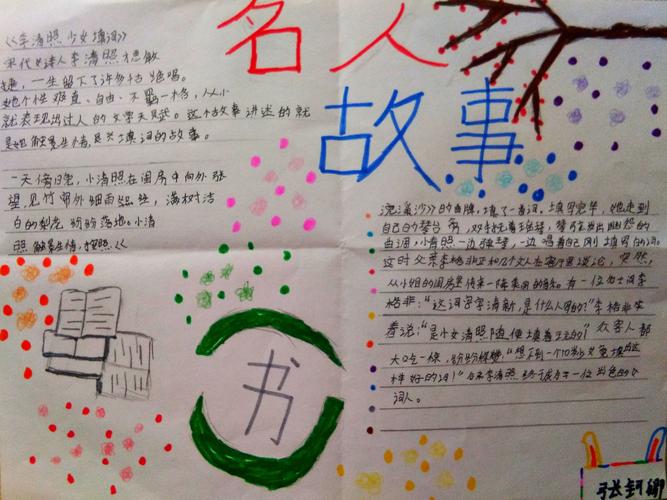 名人
故事
《李清照少女填词》
宋代女诗人李清照才思敏
捷，一生留下了许多千古绝唱。
她个性难直、自由、不羁一格，从小
就表现出过人的文学天赋。这个故事讲述的就
是她触景生情，
填词的故事。
一天傍晚，小清照在闺房中向外张
望，见竹帘外细雨
丝丝，满树洁
白的梨花纷纷落地。小清
照触景生情，按照《
浣溪沙》的曲牌，填了一首词。填写完毕，她走到
自己的琴台旁，
琴弦发出幽怨的
曲调，小清照一边弹琴，一边唱着自己刚填写的词。
这时父亲李格非正和几个文人在客厅里谈论，突然，
从小姐的闺房里传来一阵
有一位
李
格非："这词写字清新，是什么人写的？"李格非笑
着说："是小女清照随便填着玩的！"众客人都
大吃一惊，纷纷称赞："想不到一个10来岁女孩填的这
样好的词！"
李清照终于成为了一位出色的女
词人。
书